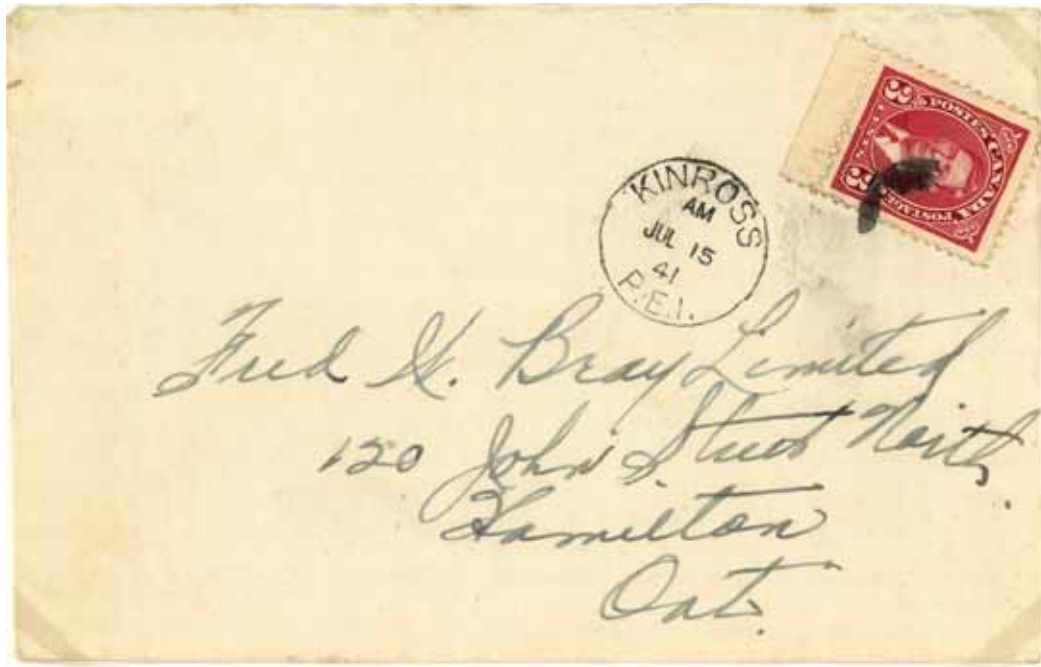 POSTES CANADA
3 CENTS 3
POSTAGE
KINROSS
AM
JUL 15
41
P.E.I.
Fred H. Bray Limited
120 John Street North
Hamilton
Ont.